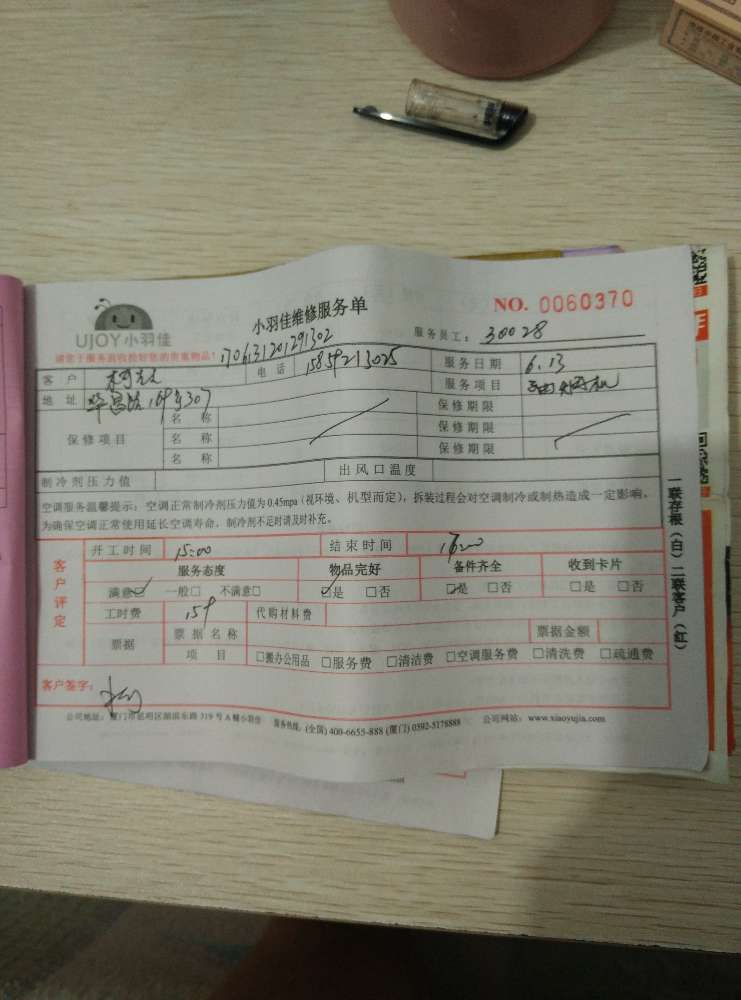 UJOY 小羽佳
小羽佳维修服务单
NO. 0060370
请您于服务前收捡好您的贵重物品!
1706131201291302
服务员工: 30028
客户 电话 15859213025 服务日期 6.13
地址 服务项目
保修项目 名称 保修期限
名称 保修期限
名称 保修期限
制冷剂压力值 出风口温度
空调服务温馨提示: 空调正常制冷剂压力值为0.45mpa (视环境、机型而定), 拆装过程会对空调制冷或制热造成一定影响,
为确保空调正常使用延长空调寿命, 制冷剂不足时请及时补充。
客户评定
开工时间 15:00 结束时间 16:00
服务态度 物品完好 备件齐全 收到卡片
满意☑ 一般□ 不满意□ ☑是 □否 ☑是 □否 □是 □否
工时费 159 代购材料费
票据 票据名称 票据金额
项目 □搬办公用品 □服务费 □清洁费 □空调服务费 □清洗费 □疏通费
客户签字:
公司地址: 厦门市思明区湖滨东路 319 号 A 幢小羽佳 服务热线: (全国) 400-6655-888 (厦门) 0592-5178888 公司网站: www.xiaoyujia.com
一联存根(白) 二联客户(红)